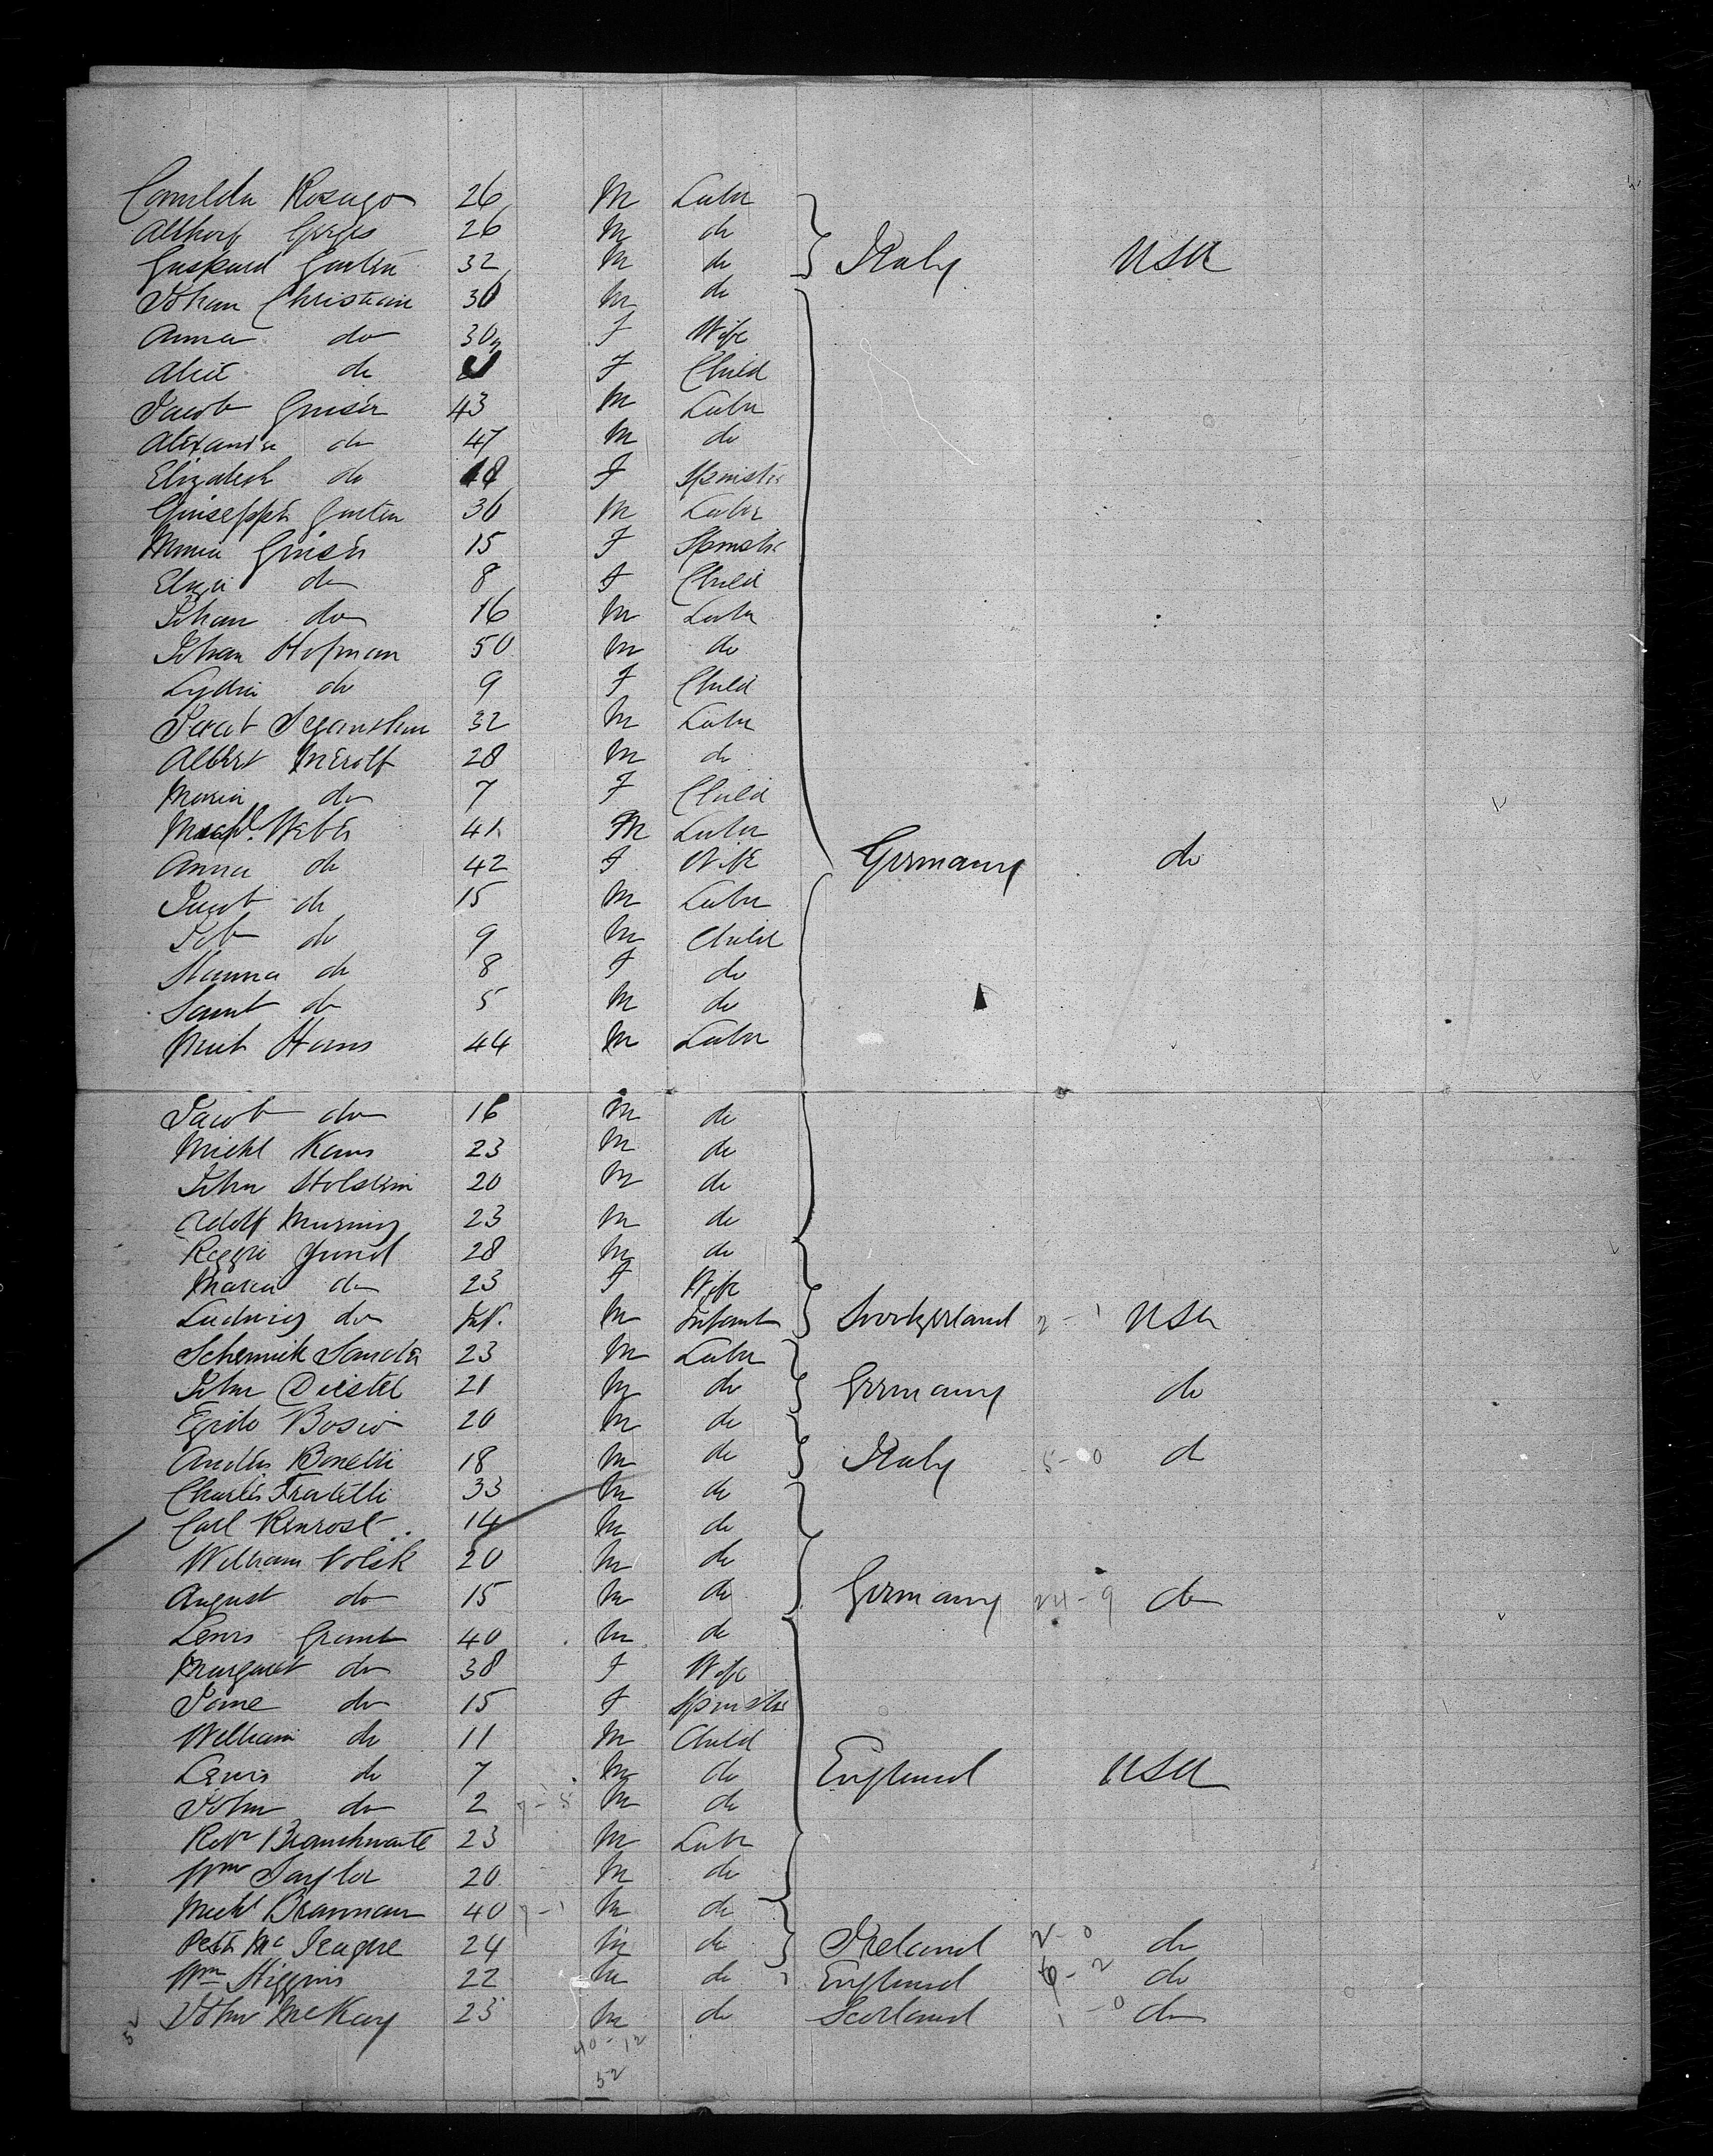 Camilda Rosago 26 M Labr
Althorf Gerges 26 M do
Guspard Gartin 32 M do Italy USA
Johan Christian 36 M do
Anna do 30 F Wife
Alice do F Child
Jacob Guiser 43 M Labr
Alixander do 47 M do
Elizabeth do 18 F Spinster
Guiseppe Gartin 36 M Labr
Maria Guiser 15 F Spinster
do 8 F Child
Johan do 16 M Labr
Johan Hofman 50 M do
Lydia do 9 F Child
32 M Labr
Albert Merolf 28 M do
Maria do 7 F Child
Weber 41 M Labr
Anna do 42 F Wife Germany do
Jacob do 15 M Labr
Job do 9 M Child
Hanna do 8 F do
do 5 M do
Hans 44 M Labr
Jacob do 16 M do
Michl Kans 23 M do
John Holstein 20 M do
Adolf 23 M do
28 M do
Maria do 23 F Wife
Ludwig do Inf. M Infant Switzerland 2-1 USA
Schernick Sander 23 M Labr
John Diestel 21 M do Germany do
Egido Bosio 20 M do
Boneli 18 M do Italy 5-0 do
Charles Fratelli 33 M do
Carl Renrost 14 M do
William Volsk 20 M do
August do 15 M do Germany 24-9 do
Lewis Grant 40 M do
Margaret do 38 F Wife
Jane do 15 F Spinster
William do 11 M Child
Lewis do 7 M do England USA
John do 2 M do
Robt Branthwaite 23 M Labr
Wm Taylor 20 M do
Michl Brannan 40 M do
Peter McTeague 24 M do Ireland 2-0 do
Wm Higgins 22 M do England 6-2 do
John McKay 23 M do Scotland 1-0 do
52
40-12
52